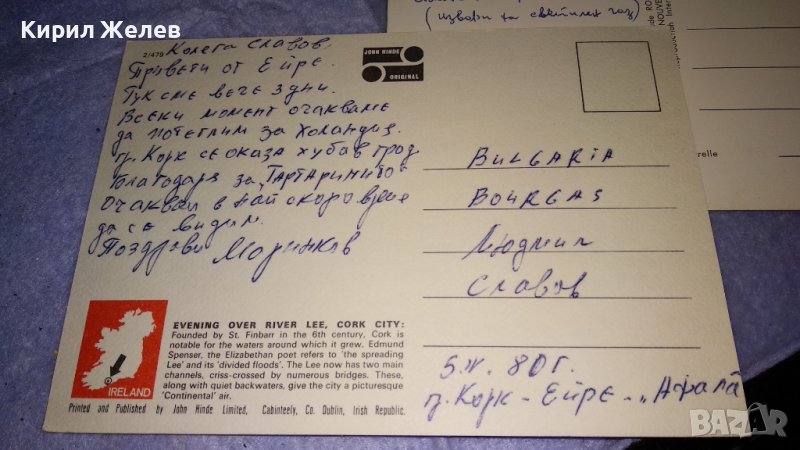 Кирил Желев
(извори на светилен газ)
2/479
Колега Славов,
Привети от Ейре.
Тук сме вече 3 дни.
Всеки момент очакваме
да потеглим за Холандия.
гр. Корк се оказа хубав град.
Благодаря за „Тартаринито"
Очаквай в най скоро време
да се видим.
Поздрави Маринков
JOHN HINDE
ORIGINAL
BULGARIA
BOURGAS
Людмил
Славов
5.IV. 80 г.
гр. Корк - Ейре - „Афала
IRELAND
EVENING OVER RIVER LEE, CORK CITY:
Founded by St. Finbarr in the 6th century, Cork is
notable for the waters around which it grew. Edmund
Spenser, the Elizabethan poet refers to 'the spreading
Lee' and its 'divided floods'. The Lee now has two main
channels, criss-crossed by numerous bridges. These,
along with quiet backwaters, give the city a picturesque
'Continental' air.
Printed and Published by John Hinde Limited, Cabinteely, Co. Dublin, Irish Republic.
BAZAR